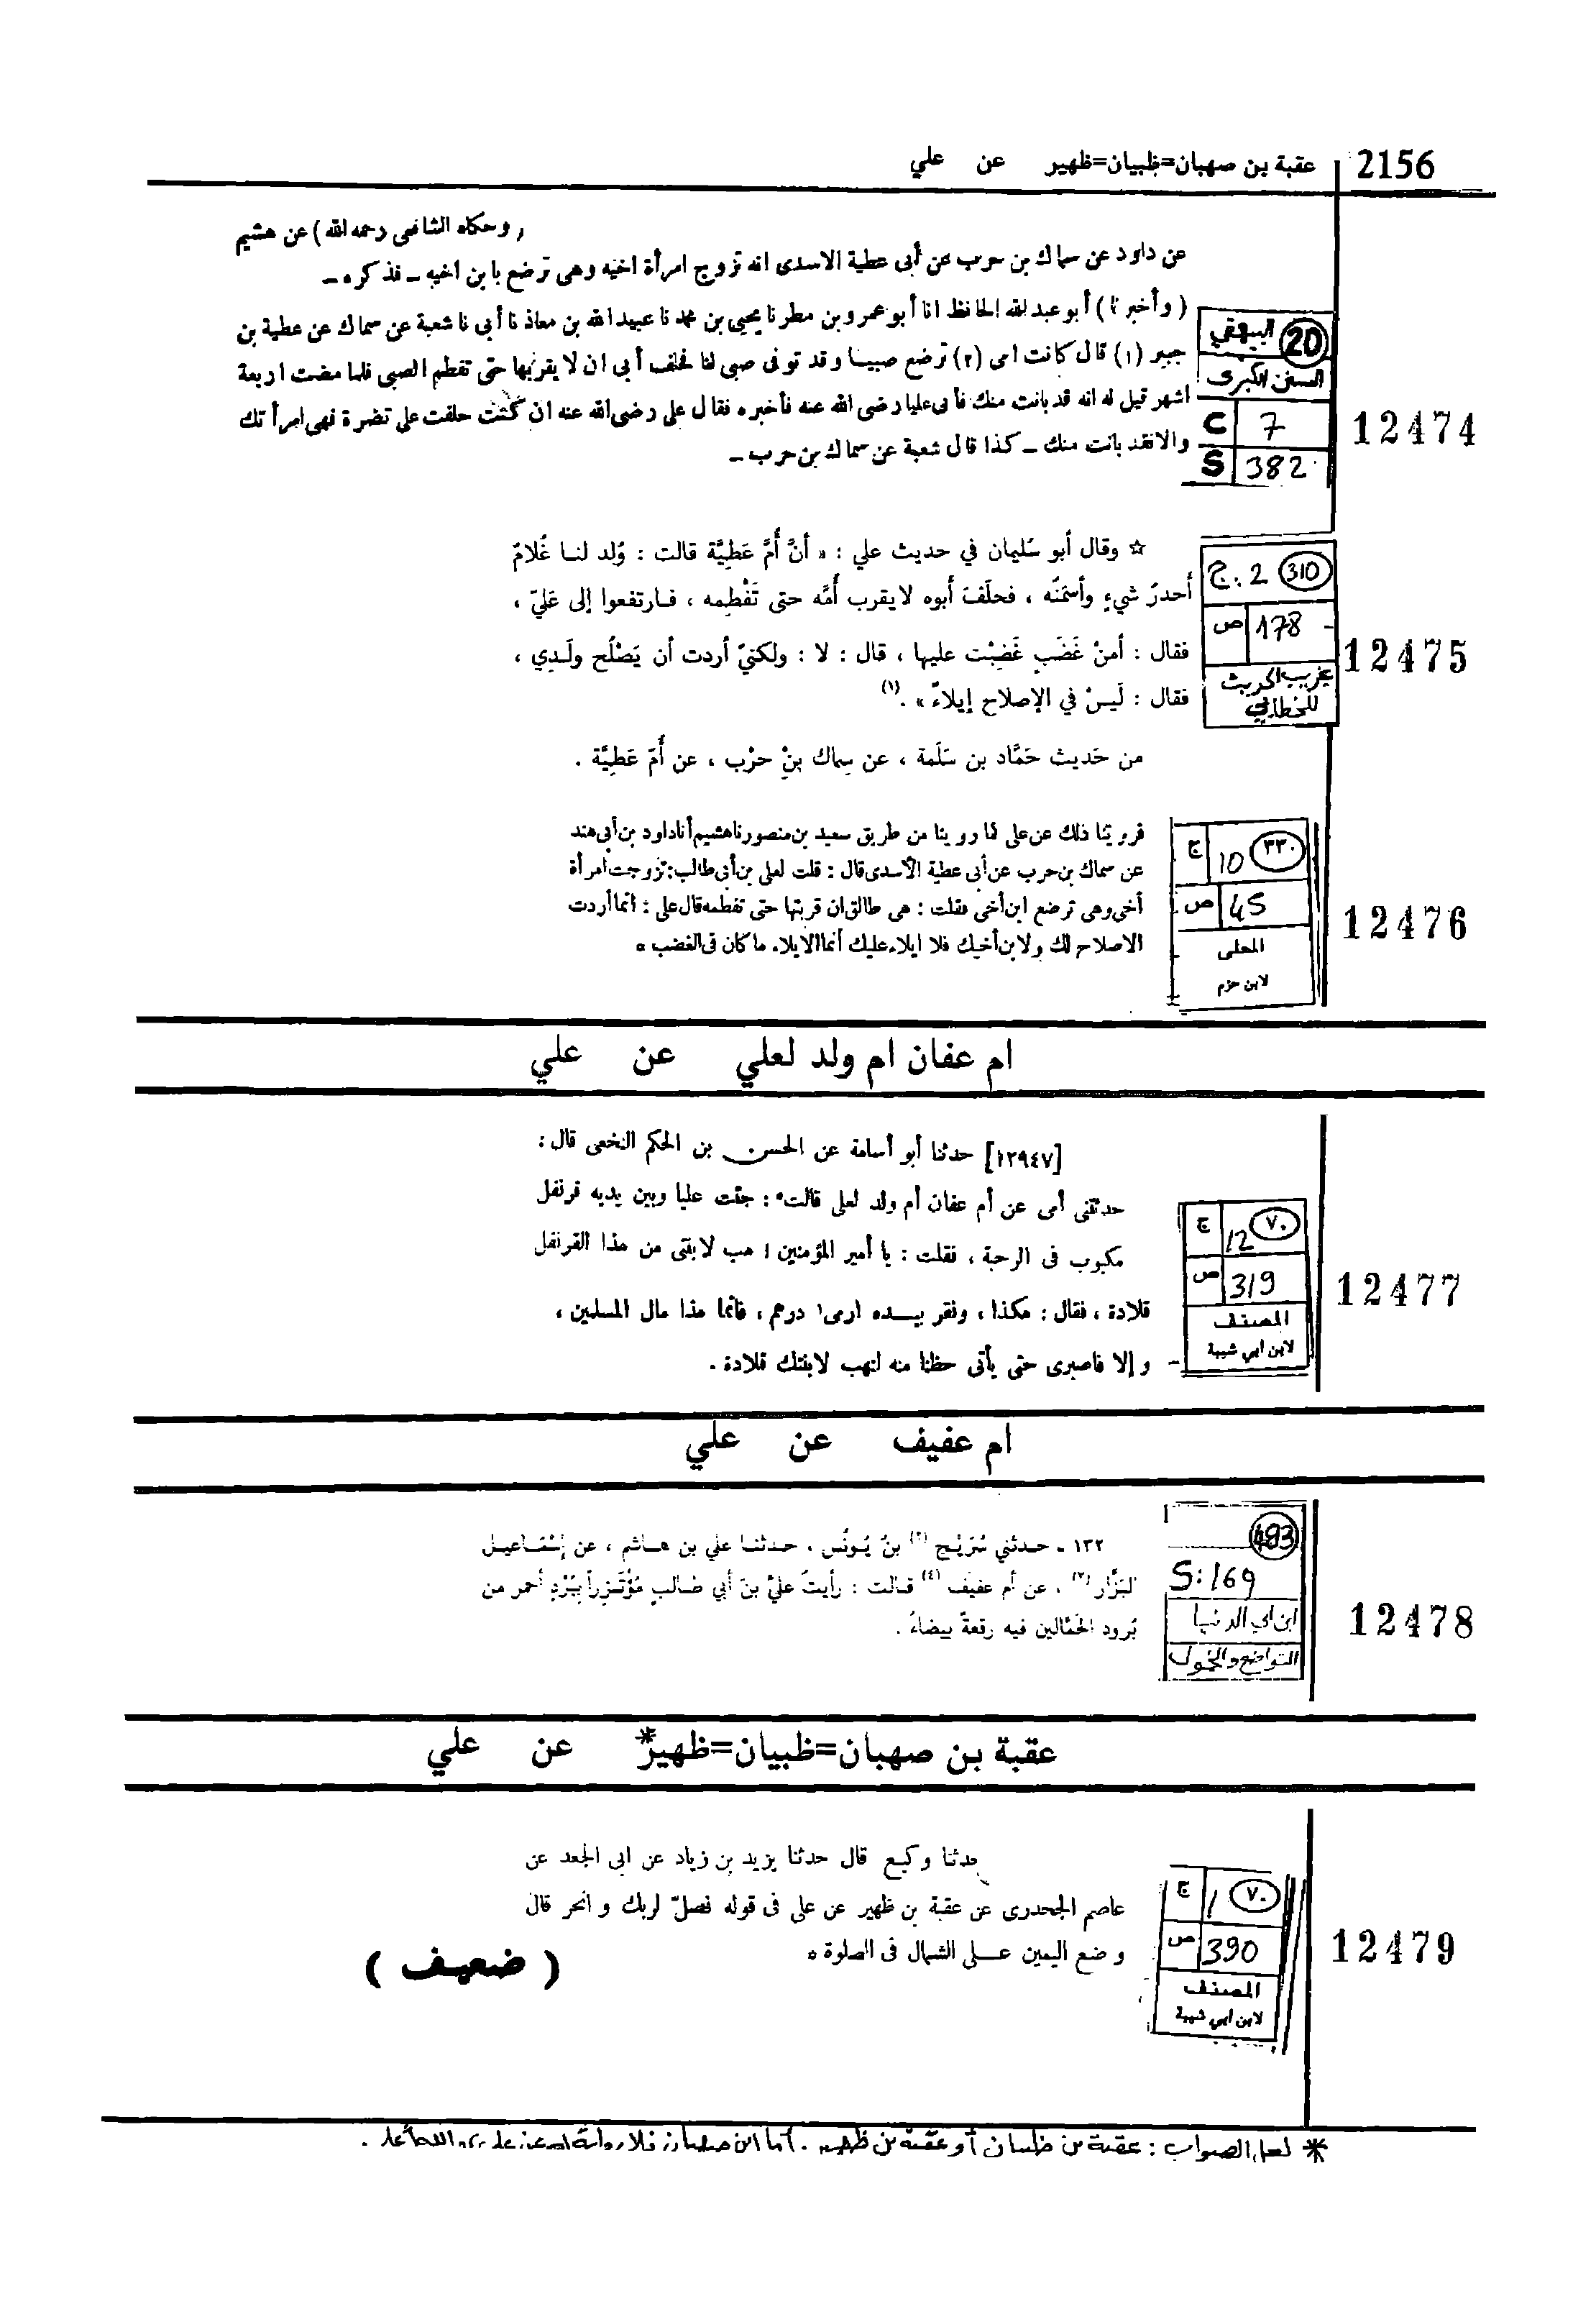 2156 عقبة بن صهبان=ظبيان=ظهير عن علي
( وحكاه الشافعى رحمه الله ) عن هشيم
عن داود عن سماك بن حرب عن أبى عطية الاسدى انه تزوج امرأة اخيه وهى ترضع بابن اخيه ـ فذكره ـ
( وأخبرنا ) أبو عبد الله الحافظ انا أبو عمرو بن مطر نا يحيى بن محمد نا عبيد الله بن معاذ نا أبى نا شعبة عن سماك عن عطية بن
جبير (١) قال كانت امى (٢) ترضع صبيا وقد توفى صبى لنا فحلف أبى ان لا يقربها حتى تفطم الصبى فلما مضت اربعة
اشهر قيل له انه قد بانت منك فأتى عليا رضى الله عنه فأخبره فقال على رضى الله عنه ان كنت حلفت على تضرة فهى امرأتك
والا فقد بانت منك ـ كذا قال شعبة عن سماك بن حرب ـ
20 البيهقي
السنن الكبرى
C 7
S 382
12474
☆ وقال أبو سُليمان في حديث علي : « أنَّ أُمَّ عَطِيَّة قالت : وُلد لنا غُلامٌ
أحدرُ شيءٍ وأسمَنُه ، فحلَفَ أبوه لا يقرب أُمَّه حتى تَفْطِمه ، فارتفعوا إلى عَليّ ،
فقال : أمنْ غَضَبٍ غَضِبْت عليها ، قال : لا : ولكنيّ أردت أن يَصْلُح ولَدِي ،
فقال : لَيسْ في الإصلاح إيلاءٌ » . (١)
من حَديث حَمَّاد بن سَلَمة ، عن سِماك بنْ حرْب ، عن أُمّ عَطِيَّة .
310 ج: 2
ص 178
غريب الحديث
للخطابي
12475
فروينا ذلك عن على كما روينا من طريق سعيد بن منصور نا هشيم أنا داود بن أبى هند
عن سماك بن حرب عن أبى عطية الأسدى قال : قلت لعلى بن أبى طالب : تزوجت امرأة
أخى وهى ترضع ابن أخى فقلت : هى طالق ان قربتها حتى تفطمه قال على : انما أردت
الاصلاح لك ولابن أخيك فلا ايلاء عليك أنما الايلاء ما كان فى الغضب ه
٣٣٠ 10 ج
ص 45
المحلى
لابن حزم
12476
ام عفان ام ولد لعلي عن علي
[١٢٩٤٧] حدثنا أبو أسامة عن الحسن بن الحكم النخعى قال :
حدثتنى أمى عن أم عفان أم ولد لعلى قالت : جئت عليا وبين يديه قرنفل
مكبوب فى الرحبة ، فقلت : يا أمير المؤمنين ! هب لابنتى من هذا القرنفل
قلادة ، فقال : هكذا ، ونقر بيـده ارمى١ درهم ، فانما هذا مال المسلمين ،
و إلا فاصبرى حتى يأتى حظنا منه لنهب لابنتك قلادة .
٧٠ 12 ج
ص 319
المصنف
لابن ابي شيبة
12477
ام عفيف عن علي
١٣٢ ـ حدثني سُرَيْج (٢) بنُ يُونُس ، حدثنا علي بن هاشم ، عن إسْمَاعيل
البَزَّار (٣) ، عن أم عفيف (٤) قالت : رأيتُ عليَّ بنَ أبي طالبٍ مُؤْتَزِراً ببُرْدٍ أحمر من
بُرود الحَمَّالين فيه رقعةٌ بيضاءُ .
493
S: 169
ابن ابي الدنيا
التواضع والخمول
12478
عقبة بن صهبان=ظبيان=ظهير* عن علي
حدثنا وكيع قال حدثنا يزيد بن زياد عن ابى الجعد عن
عاصم الجحدرى عن عقبة بن ظهير عن على فى قوله فصلّ لربك و انحر قال
وضع اليمين عـلى الشمال فى الصلوة ه
( ضعيف )
٧٠ 1 ج
ص 390
المصنف
لابن ابي شيبة
12479
* لعل الصواب : عقبة بن ظبيان أو عقبة بن ظهير . أما ابن صهبان فلا رواية له عن علي والله أعلم .